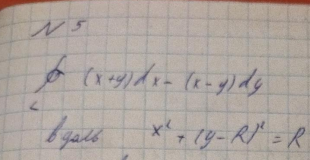 N 5
∮ (x+y)dx - (x-y)dy
L
вдоль x² + (y-R)² = R